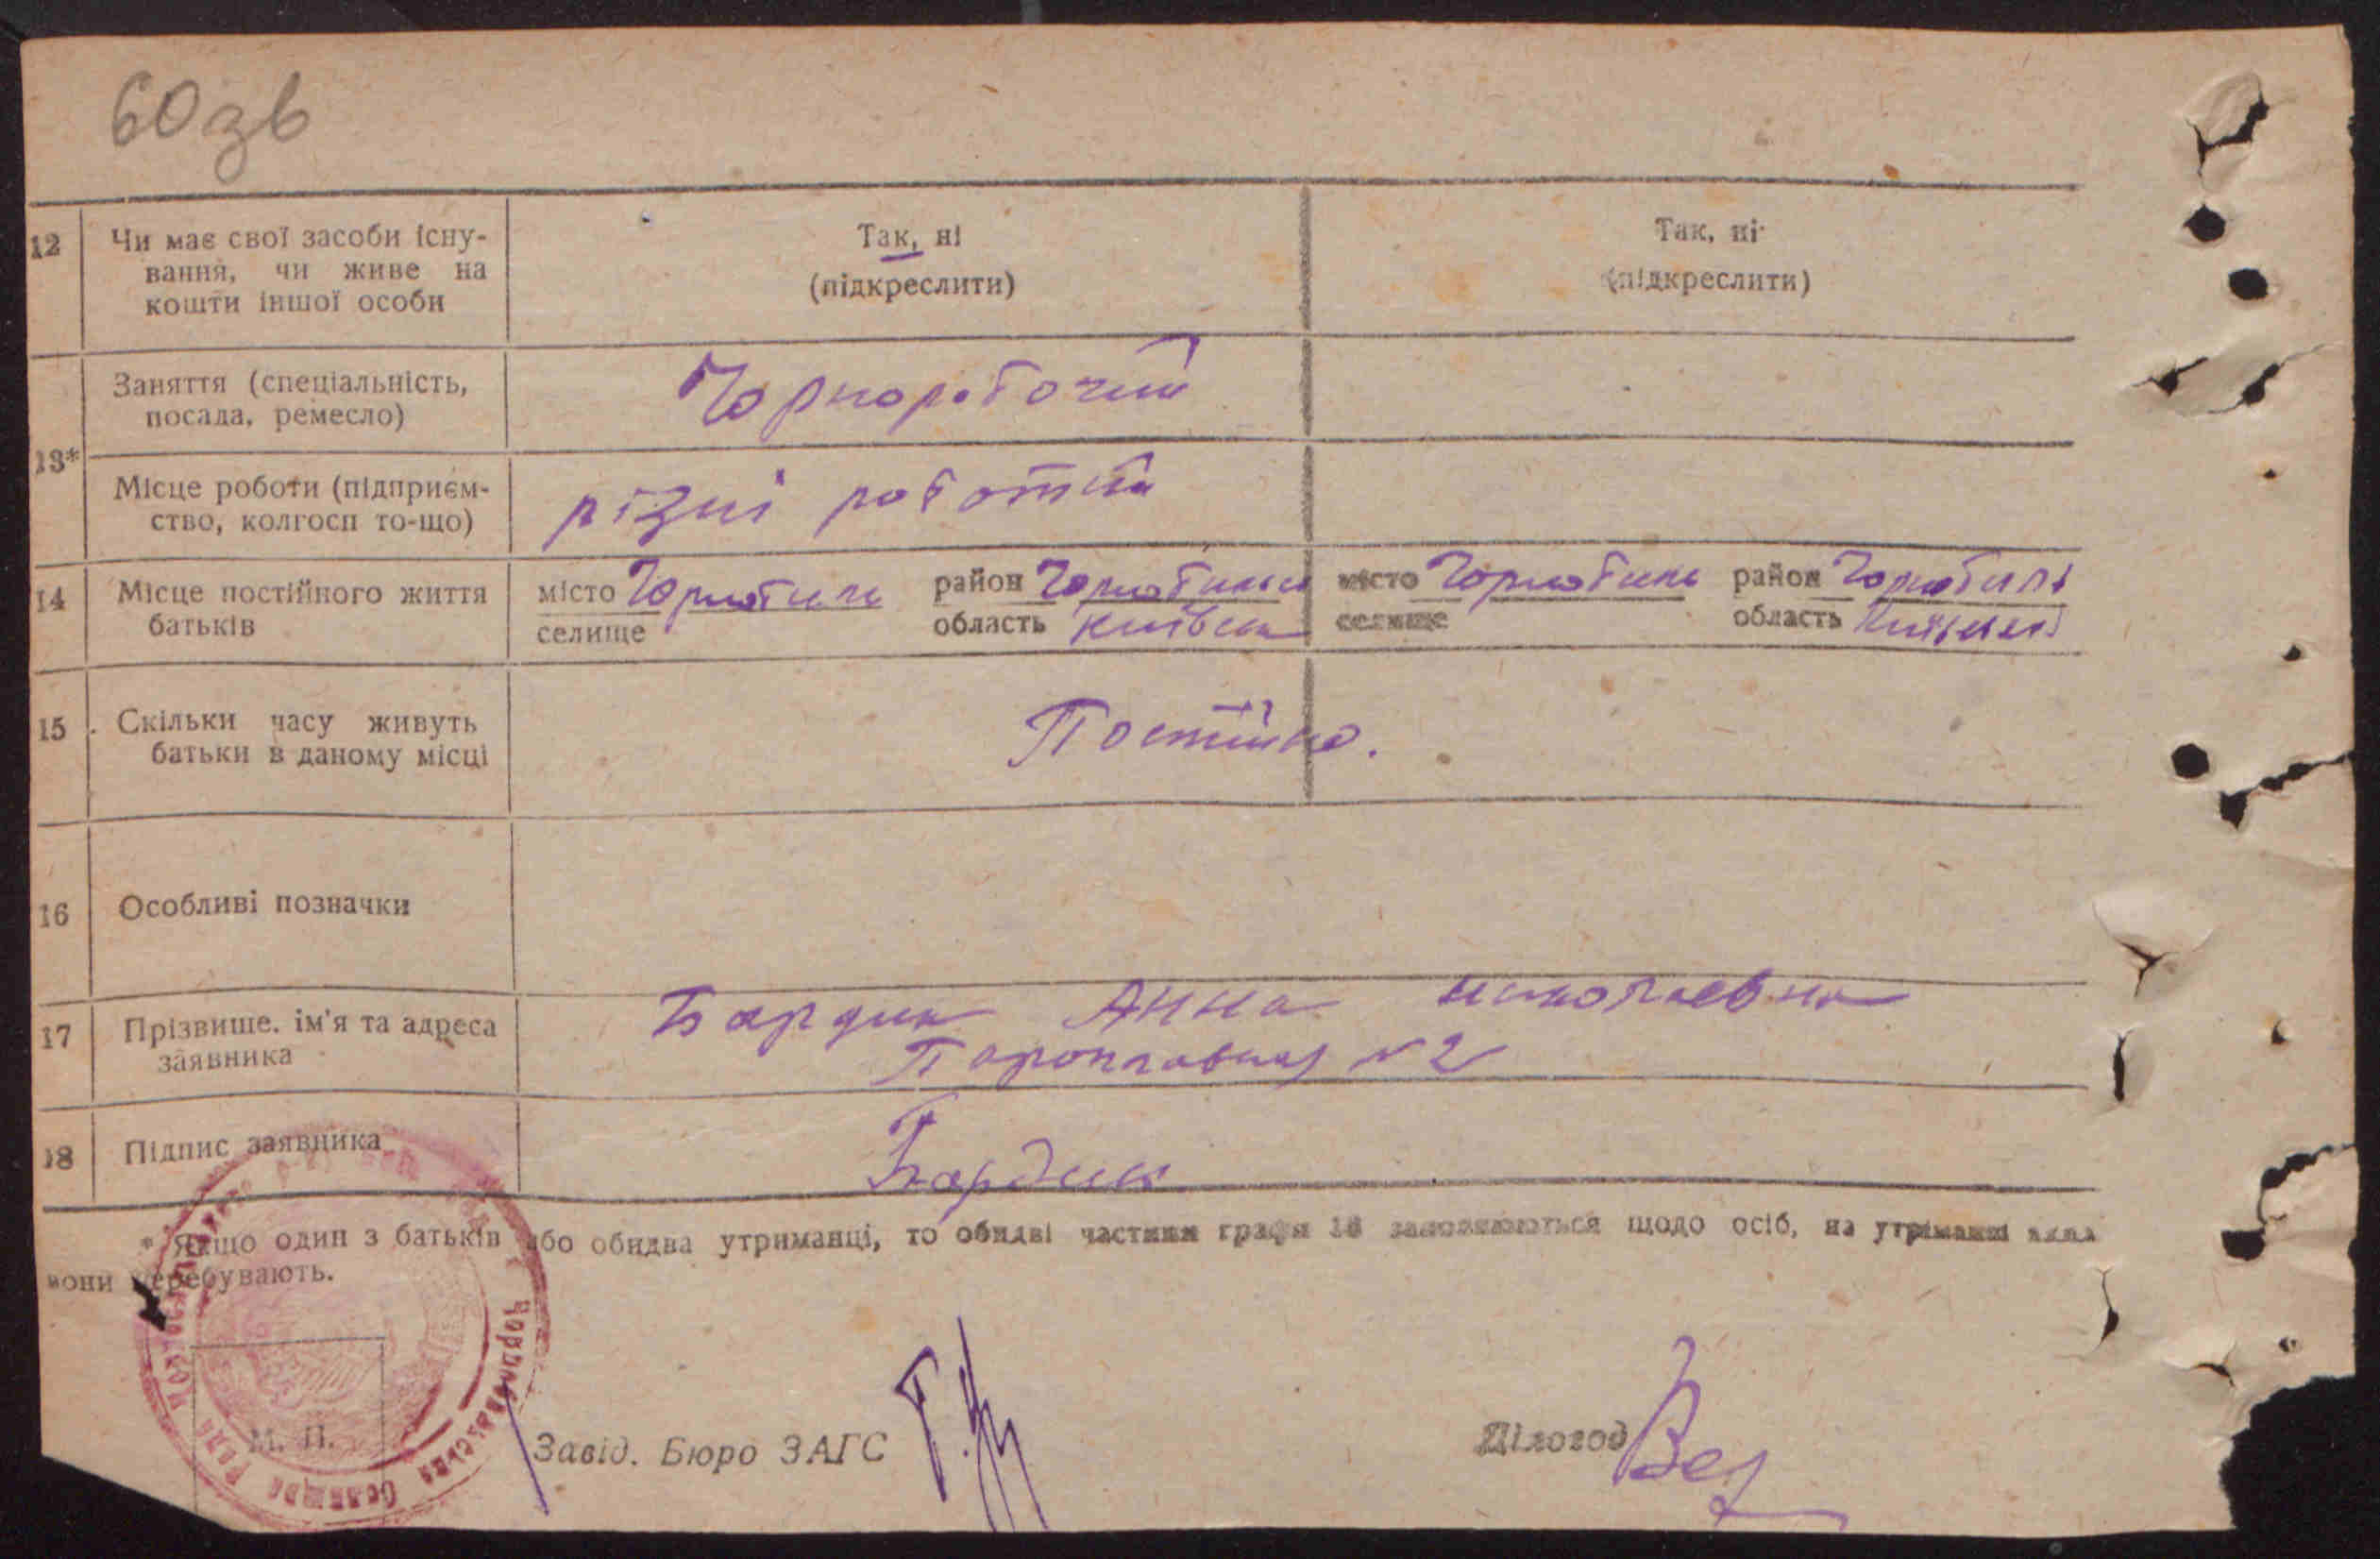 60зв
12 Чи має свої засоби існу- Так, ні Так, ні
вання, чи живе на (підкреслити) (підкреслити)
кошти іншої особи
13* Заняття (спеціальність, Чорноробочий
посада, ремесло)
Місце роботи (підприєм- різні работи
ство, колгосп то-що)
14 Місце постійного життя місто Чорнобиль район Чорнобильс місто Чорнобиль район Чорнобиль
батьків селище область Київськ селище область
15 Скільки часу живуть Постійно.
батьки в даному місці
16 Особливі позначки
17 Прізвище, ім'я та адреса Бардик Анна николаевна
заявника Пароплавная № 2
18 Підпис заявника Бардик
* Якщо один з батьків або обидва утриманці, то обидві частини графи 13 заповнюються щодо осіб, на утриманні яких
вони перебувають.
Чорнобильська Селищна Рада
М. П. Завід. Бюро ЗАГС Діловод